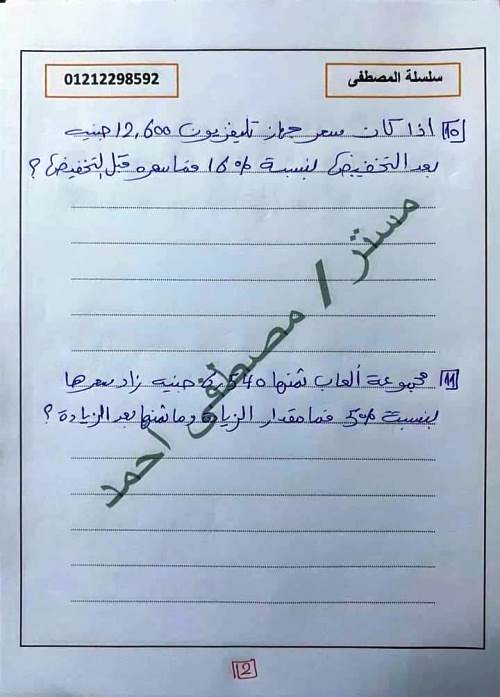 سلسلة المصطفى
01212298592
10 اذا كان سعر جهاز تليفزيون 12,600 جنيه
بعد التخفيض بنسبة 16% فما سعره قبل التخفيض ؟
11 مجموعة ألعاب ثمنها 540 جنيه زاد سعرها
بنسبة 5% فما مقدار الزيادة وما ثمنها بعد الزيادة ؟
مستر / مصطفى احمد
2